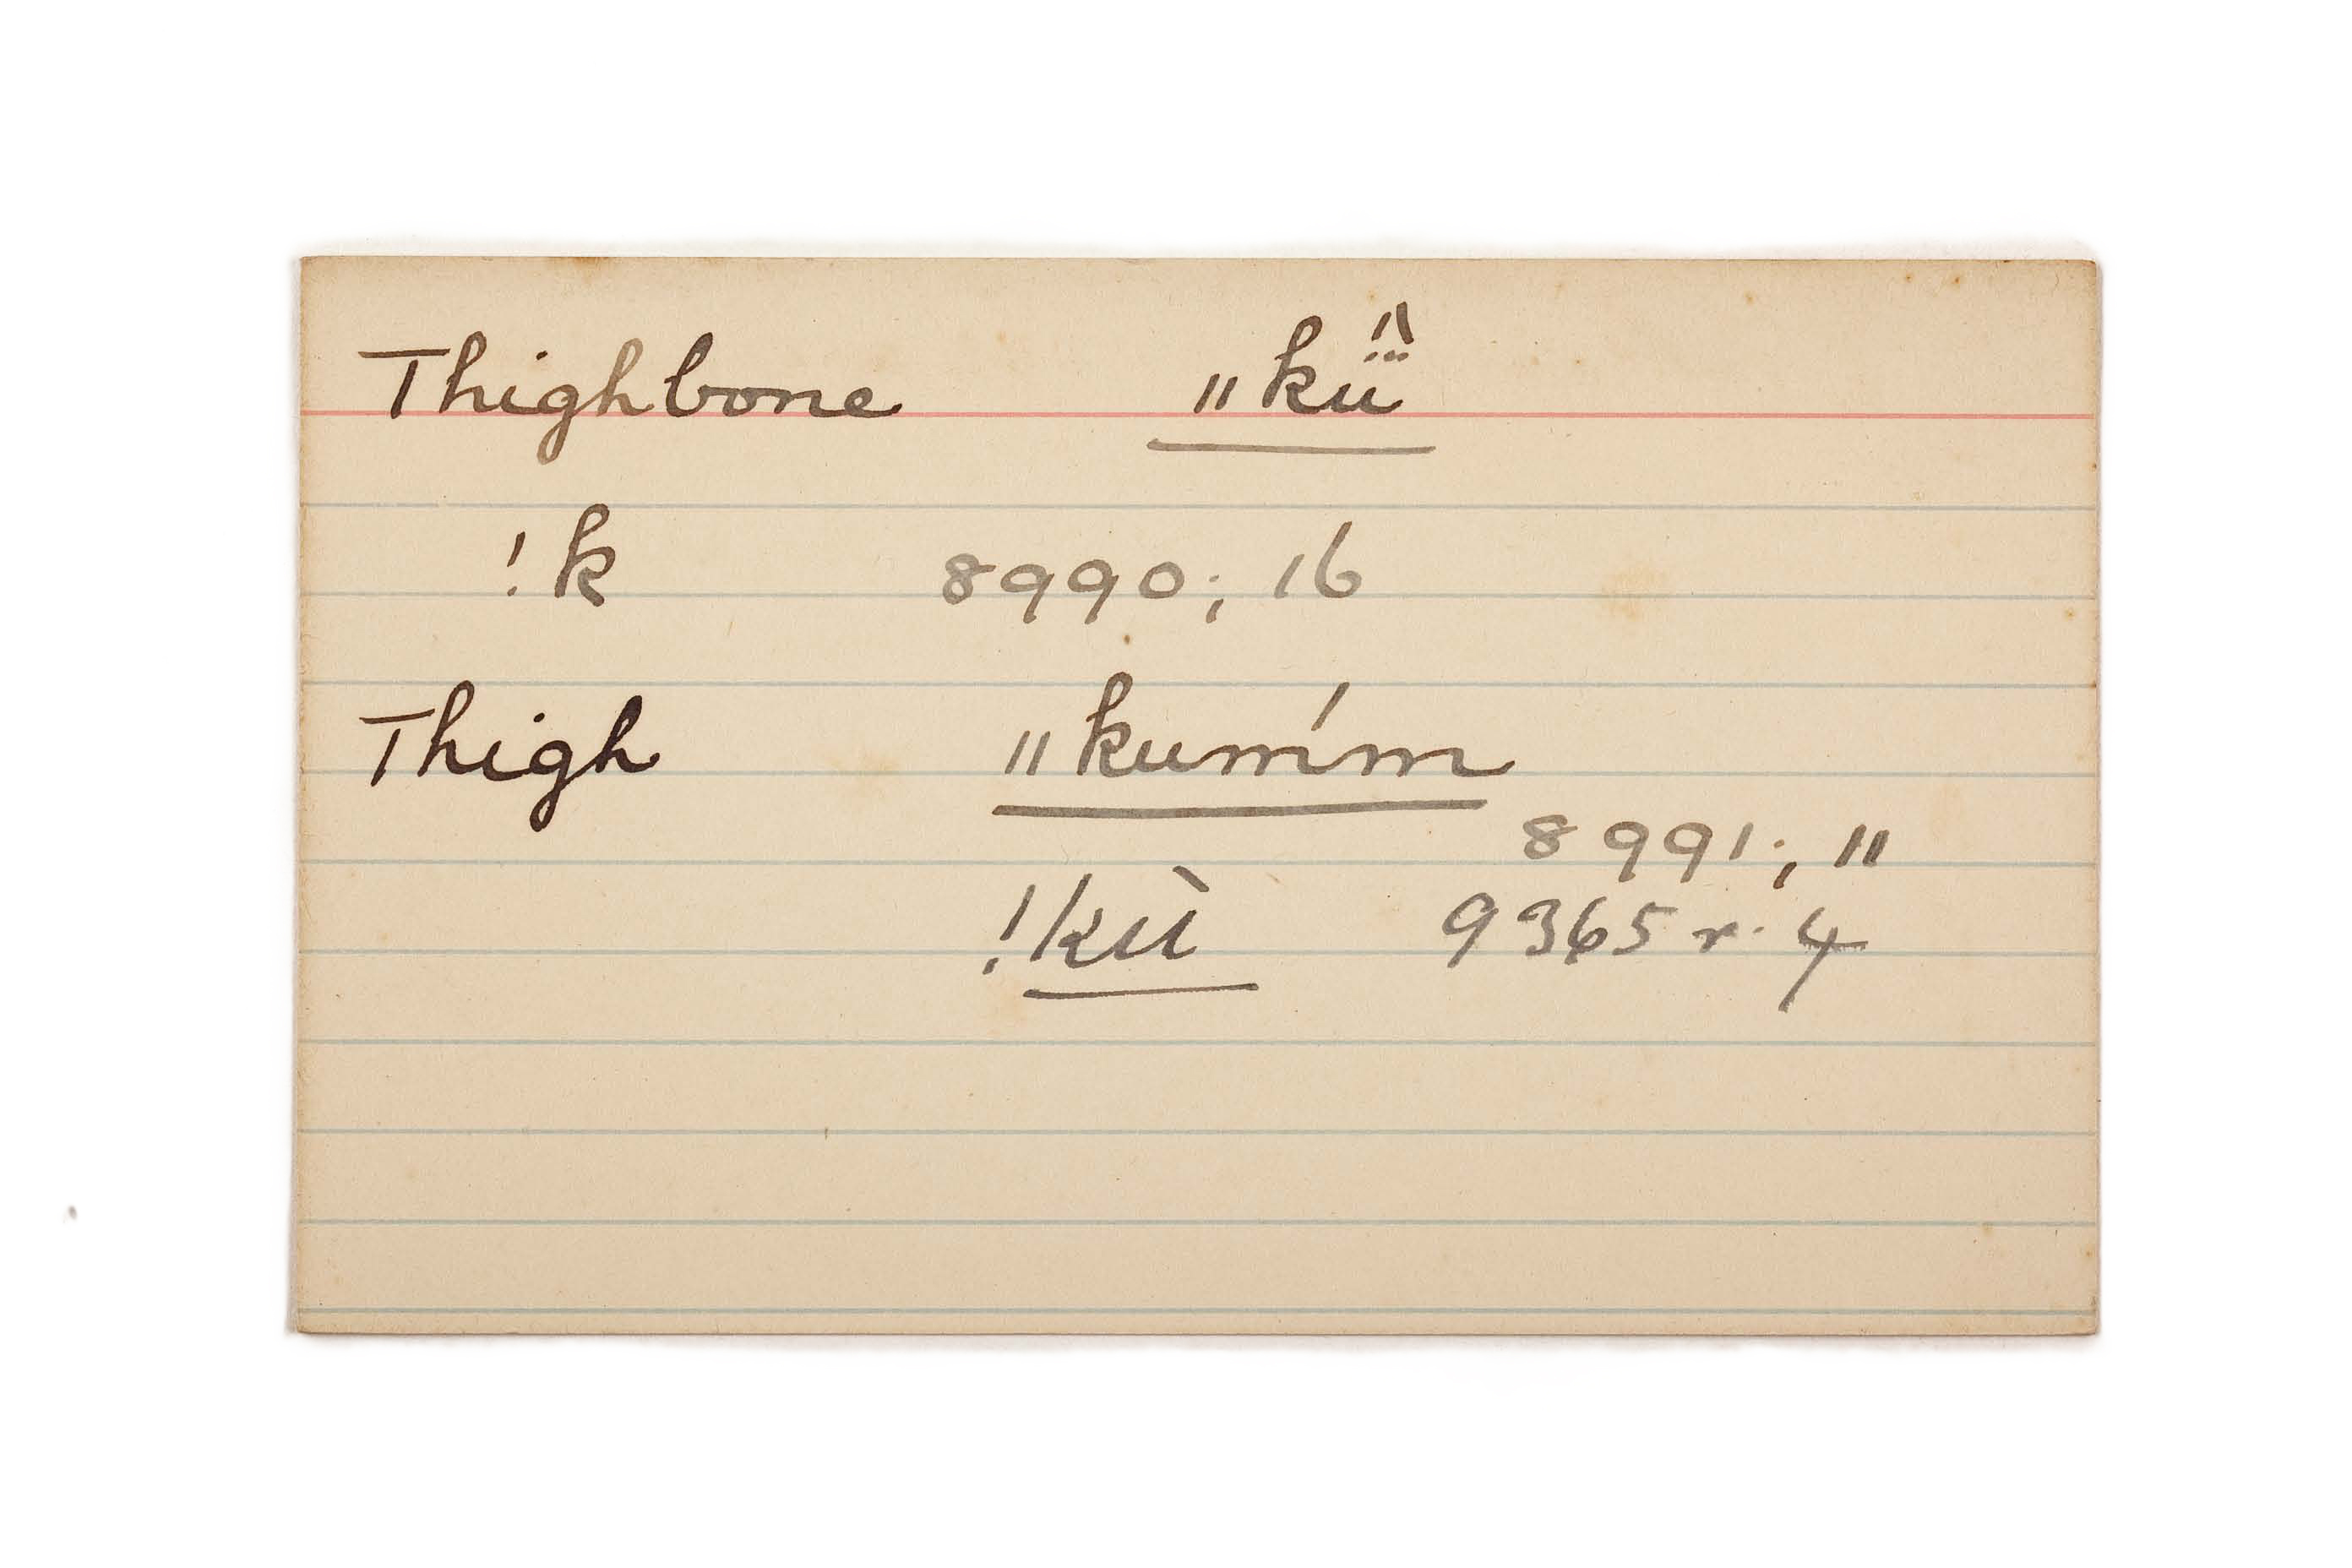 Thighbone ǁkű̈
!k 8990; 16
Thigh ǁkum´m
8991; 11
!kù 9365 r. 4